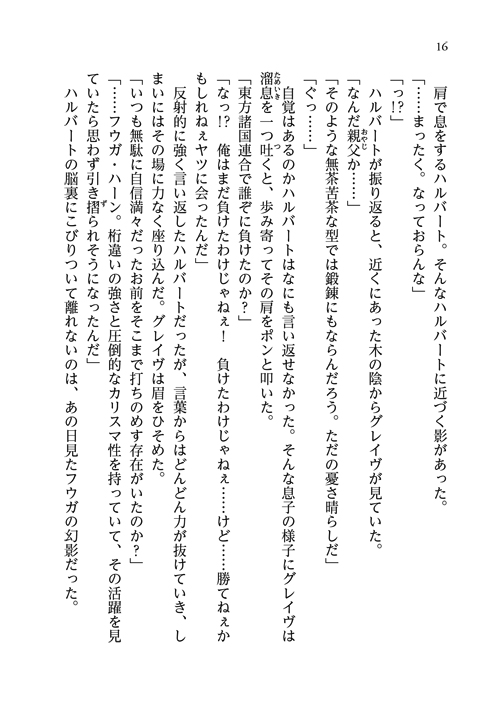 16
肩で息をするハルバート。そんなハルバートに近づく影があった。
「……まったく。なっておらんな」
「っ!?」
ハルバートが振り返ると、近くにあった木の陰からグレイヴが見ていた。
「なんだ親父か……」
おやじ
「そのような無茶苦茶な型では鍛錬にもならんだろう。ただの憂さ晴らしだ」
「ぐっ……」
自覚はあるのかハルバートはなにも言い返せなかった。そんな息子の様子にグレイヴは
溜息を一つ吐くと、歩み寄ってその肩をポンと叩いた。
ためいき
つ
「東方諸国連合で誰ぞに負けたのか？」
「なっ!?　俺はまだ負けたわけじゃねぇ！　負けたわけじゃねぇ……けど……勝てねぇか
もしれねぇヤツに会ったんだ」
反射的に強く言い返したハルバートだったが、言葉からはどんどん力が抜けていき、し
まいにはその場に力なく座り込んだ。グレイヴは眉をひそめた。
「いつも無駄に自信満々だったお前をそこまで打ちのめす存在がいたのか？」
「……フウガ・ハーン。桁違いの強さと圧倒的なカリスマ性を持っていて、その活躍を見
ていたら思わず引き摺られそうになったんだ」
ず
ハルバートの脳裏にこびりついて離れないのは、あの日見たフウガの幻影だった。